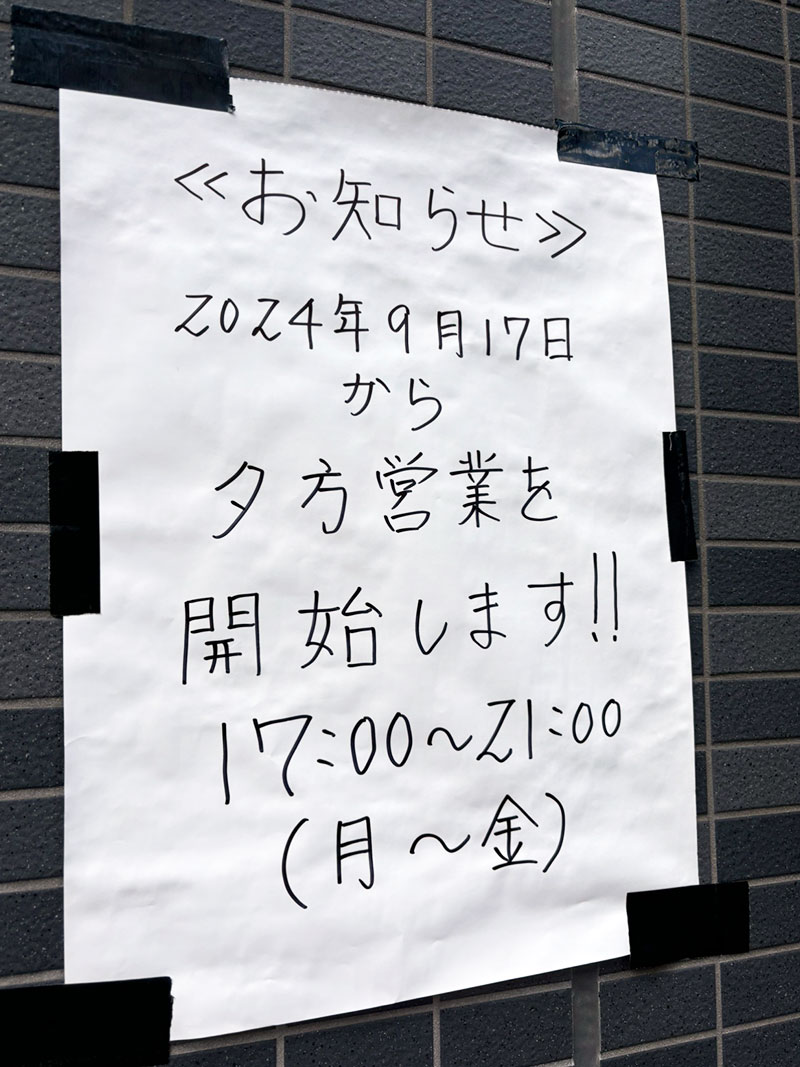 ≪お知らせ≫
2024年9月17日
から
夕方営業を
開始します!!
17:00～21:00
(月～金)